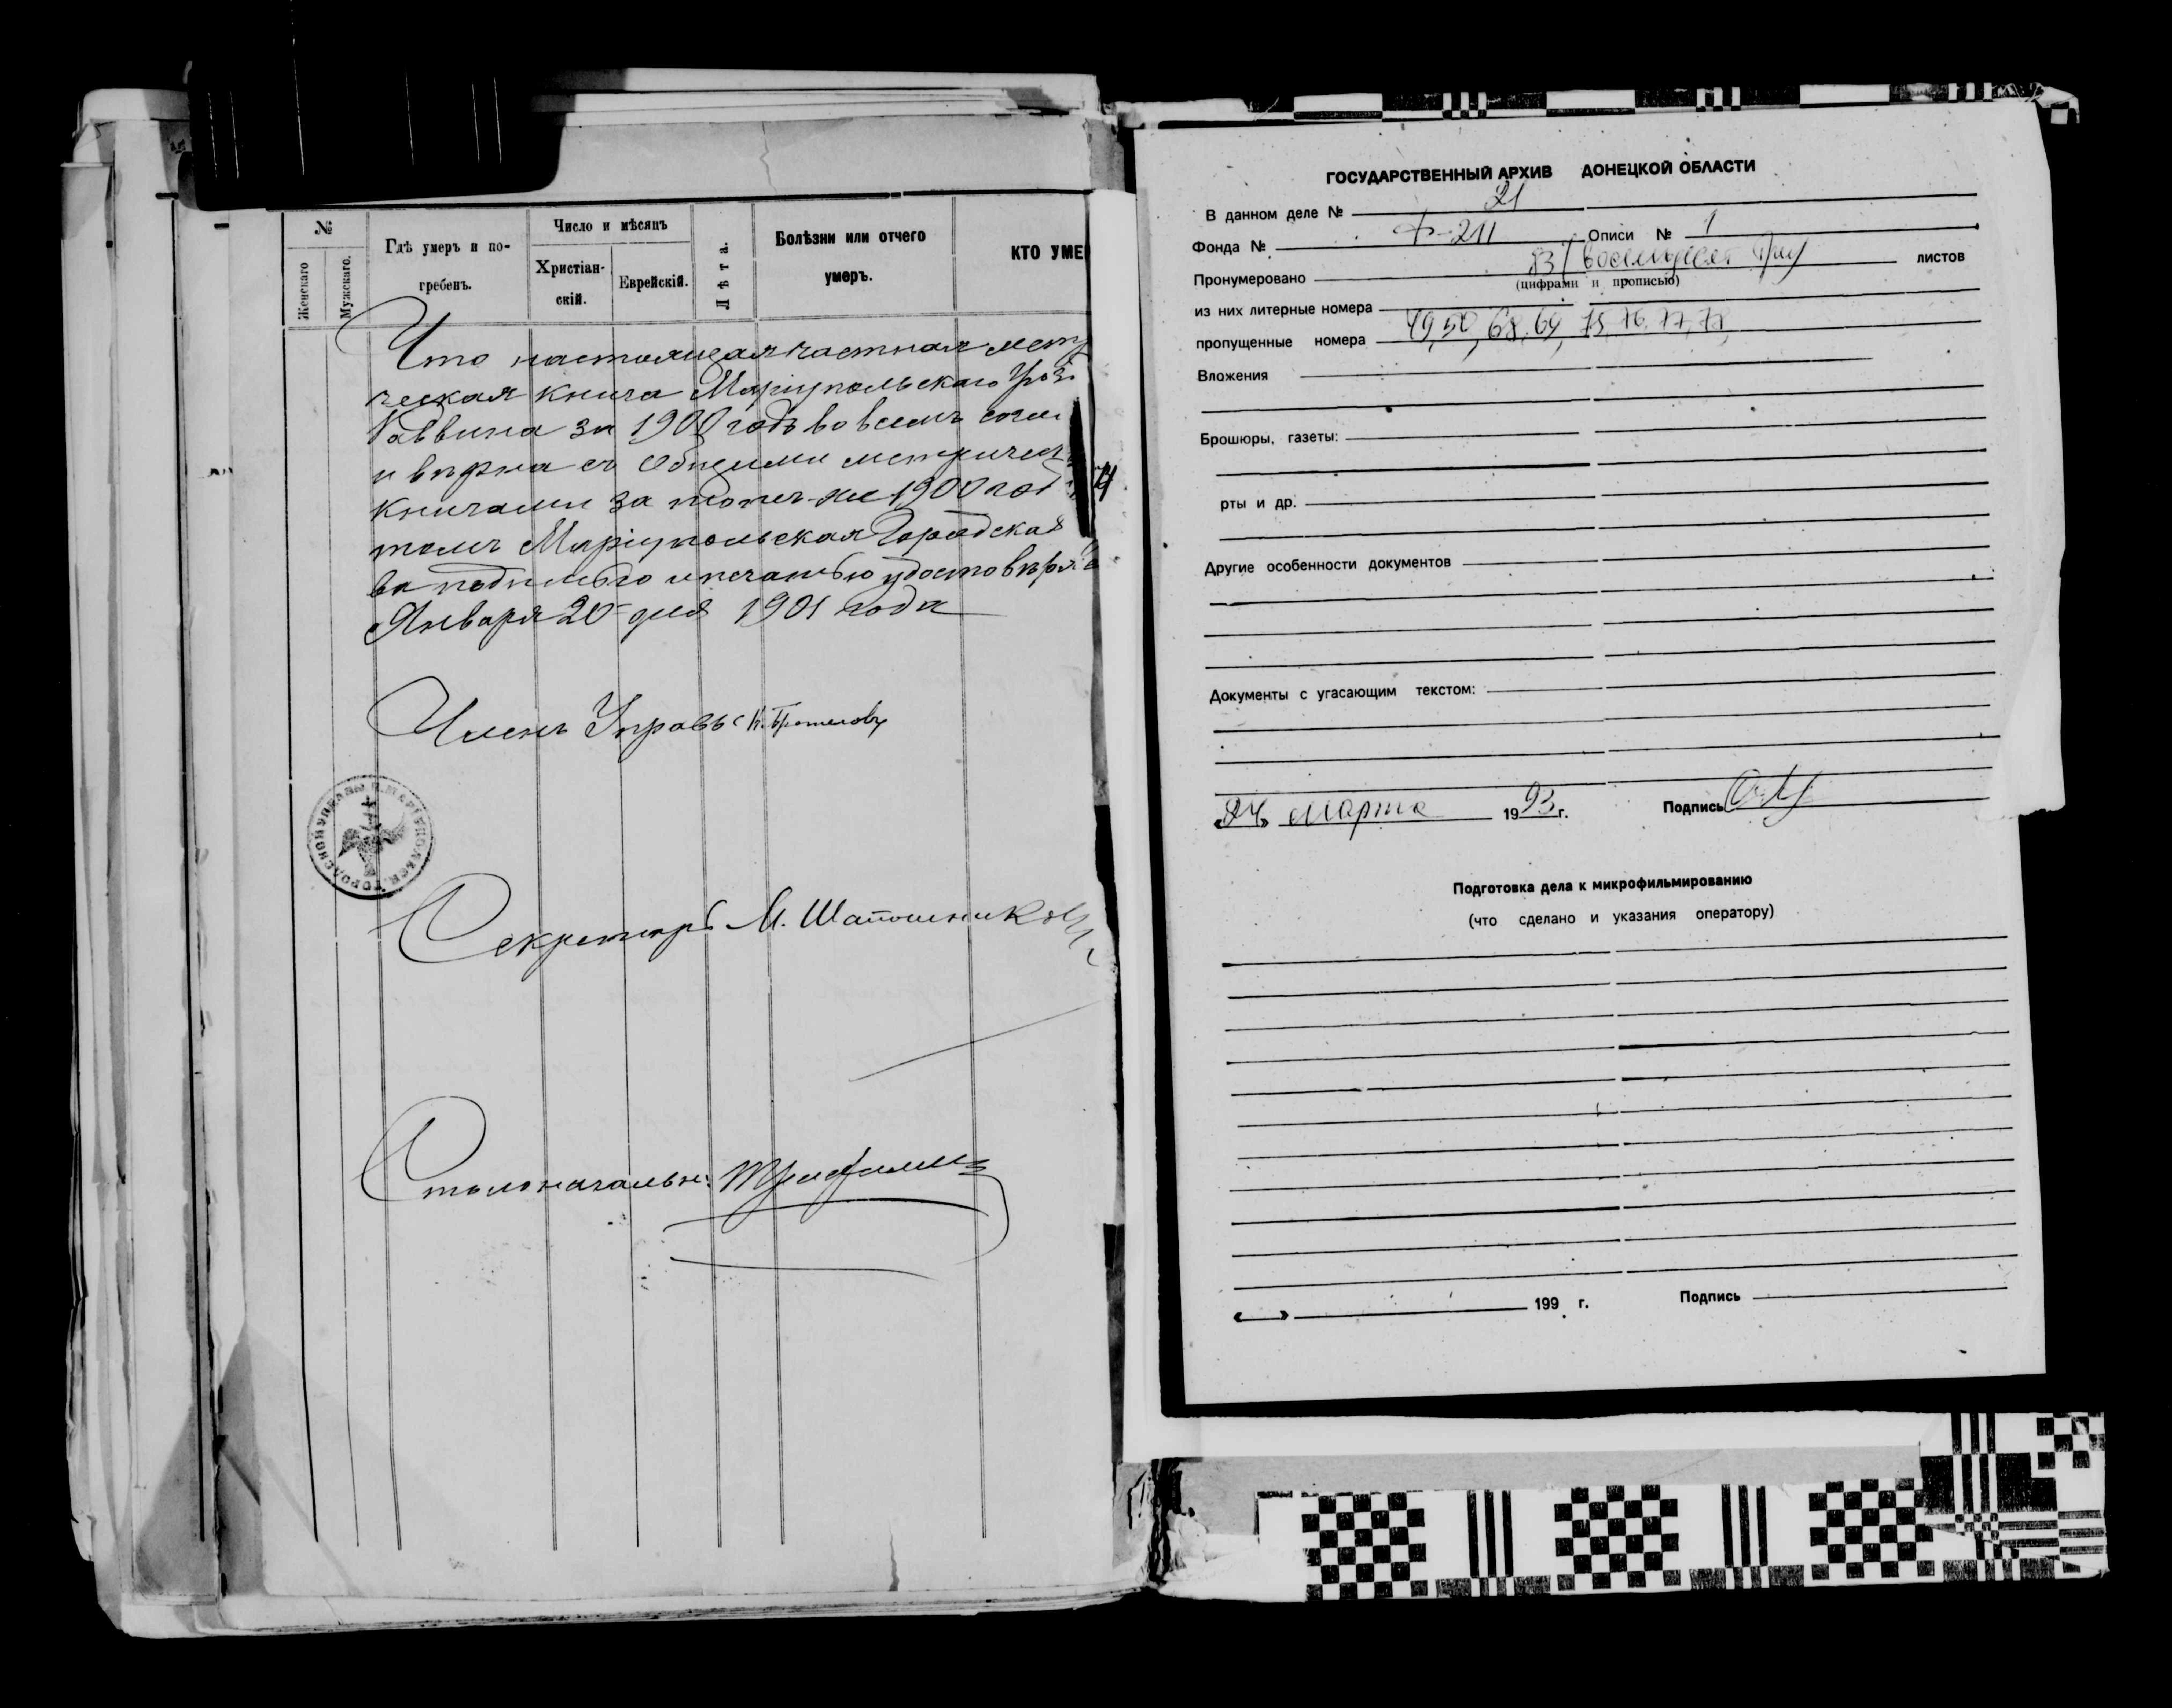 №
Женскаго
Мужскаго.
Гдѣ умеръ и по-
гребенъ.
Число и мѣсяцъ
Христіан-
скій.
Еврейскій.
Лѣта.
Болѣзни или отчего
умеръ.
КТО УМЕ
Что настоящая частная метр
ческая книга Маріупольскаго
Раввина за 1900 годъ во всемъ
и вѣрна съ общими метричес
книгами за тотъ-же 1900 год
томъ Маріупольская Городская
ва подписью и печатью удостовѣряе
Января 20 дня 1901 года
Членъ Управы
Секретарь М. Шапошников
Столоначальн:
ГОСУДАРСТВЕННЫЙ АРХИВ ДОНЕЦКОЙ ОБЛАСТИ
В данном деле № 21
Фонда № Ф-211 Описи № 1
Пронумеровано 83/восемьдесят три листов
(цифрами и прописью)
из них литерные номера
пропущенные номера 49, 50, 68, 69, 75, 76, 77, 78
Вложения
Брошюры, газеты:
рты и др.
Другие особенности документов
Документы с угасающим текстом:
«24» марта 1993 г. Подпись
Подготовка дела к микрофильмированию
(что сделано и указания оператору)
« » 199 г. Подпись